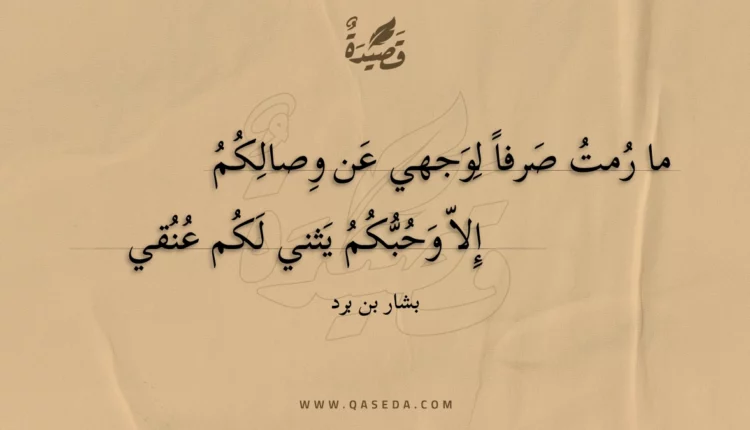 قَصِيْدَةٌ
ما رُمتُ صَرفاً لِوَجهي عَن وِصالِكُمُ
إِلاّ وَحُبُّكُمُ يَثني لَكُم عُنُقي
بشار بن برد
WWW.QASEDA.COM